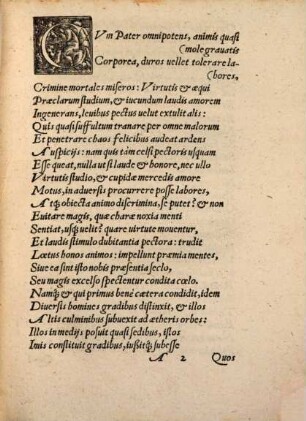 CVm Pater omnipotens, animis quasi
mole grauatis
Corporea, duros uellet tolerare la-
bores,
Crimine mortales miseros: Virtutis & æqui
Præclarum studium, & iucundum laudis amorem
Ingenerans, leuibus pectus uelut extulit alis:
Quis quasi suffultum tranare per omne malorum
Et penetrare chaos felicibus audeat ardens
Auspicijs: nam quis tàm celsi pectoris usquam
Esse queat, nulla ut si laude & honore, nec ullo
Virtutis studio, & cupidæ mercedis amore
Motus, in aduersis procurrere posse labores,
Atq; obiecta animo discrimina, se putet? & non
Euitare magis, quæ charæ noxia menti
Sentiat, usq; uelit? quare uirtute mouentur,
Et laudis stimulo dubitantia pectora: trudit
Lætus honos animos: impellunt præmia mentes,
Siue ea sint isto nobis præsentia seclo,
Seu magis excelso spectentur condita cœlo.
Namq; & qui primus bene cætera condidit, idem
Diuersis homines gradibus distinxit, & illos
Altis culminibus subuexit ad ætheris orbes:
Illos in medijs posuit quasi sedibus, istos
Imis constituit gradibus, iußitq; subesse
A 2 Quos